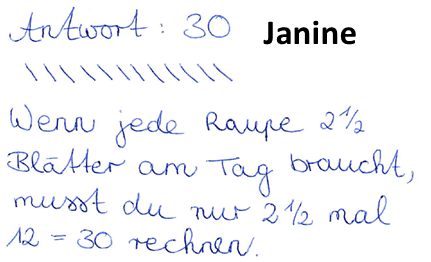 Antwort: 30 Janine
\\\\\\\\\\\\
Wenn jede Raupe 2 1/2
Blätter am Tag braucht,
musst du nur 2 1/2 mal
12 = 30 rechnen.